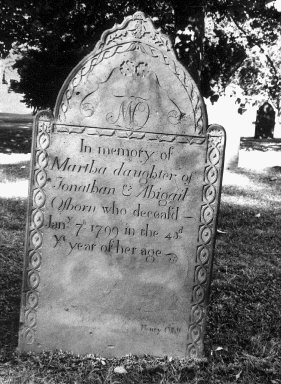 MO
In memory of
Martha daughter of
Jonathan & Abigail
Osborn who deceaſd
Janʸ 7ᵗʰ 1799 in the 43ᵈ
Yᵉ year of her age